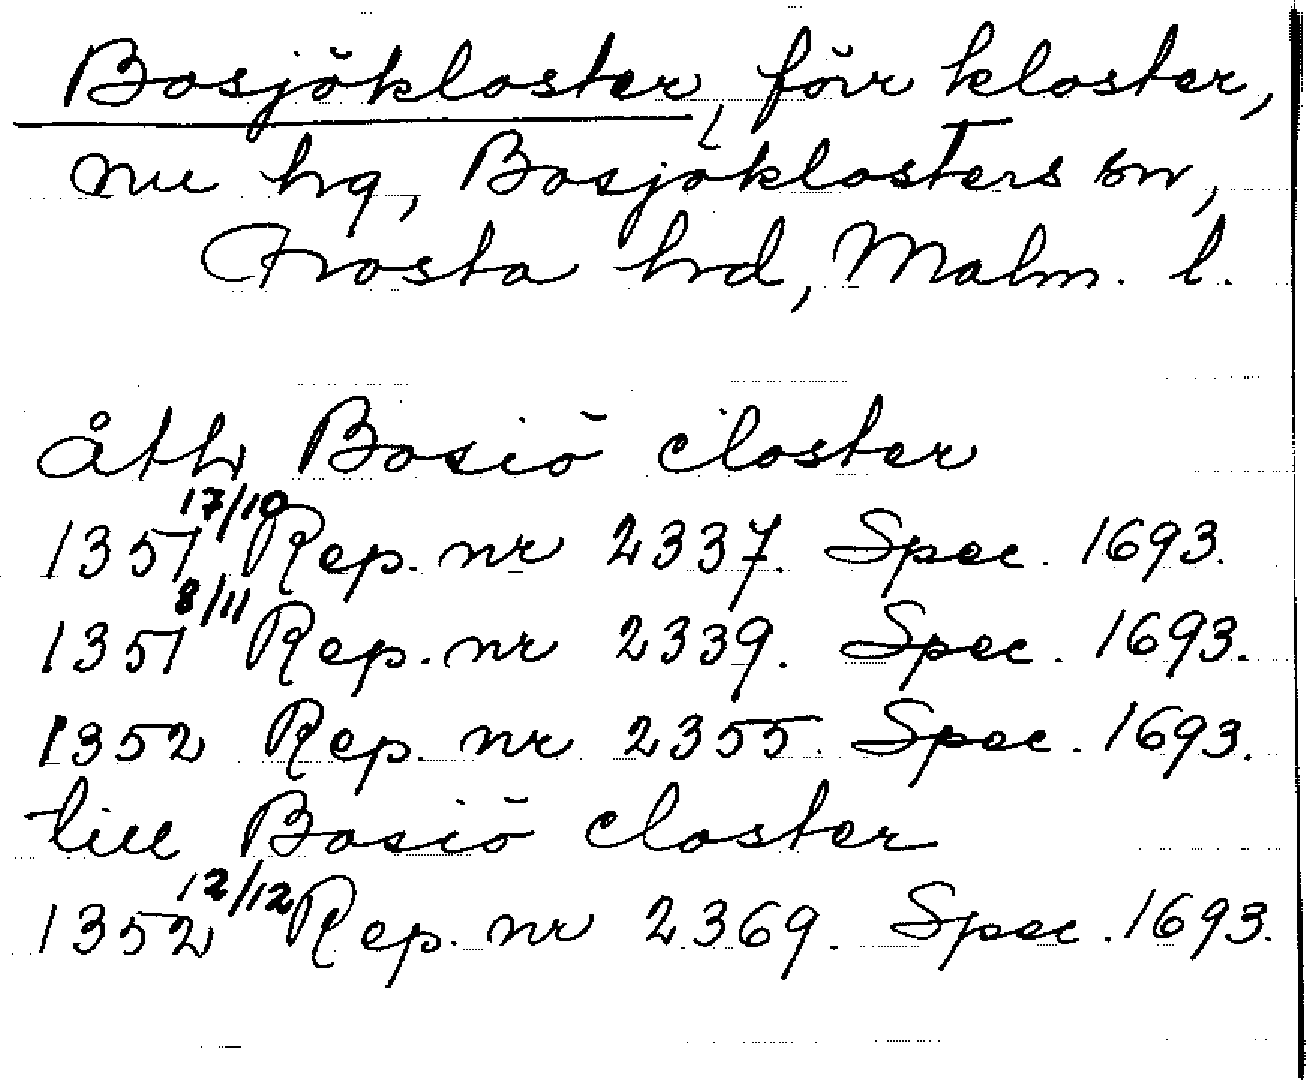 Bosjökloster, förr kloster,
nu hg, Bosjöklosters sn,
Frosta hrd, Malm. l.
åth Bosiö closter
1351 17/10 Rep. nr 2337. Spec. 1693.
1351 8/11 Rep. nr 2339. Spec. 1693.
1352 Rep. nr 2355. Spec. 1693.
till Bosiö closter
1352 12/12 Rep. nr 2369. Spec. 1693.